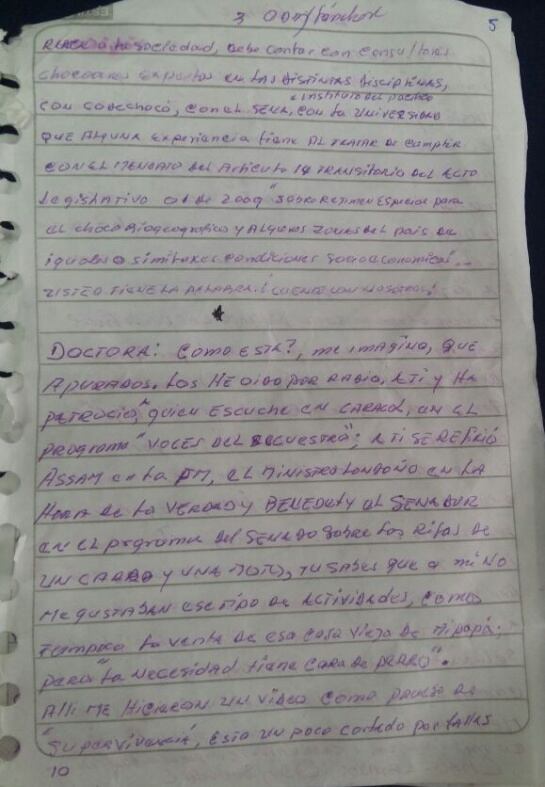 5
a la sociedad, debe contar con consultores
chocoanos expertos en las distintas disciplinas,
Instituto del pacifico
con codechocó, con el SENA, con la UNIVERSIDAD
QUE ALGUNA experiencia tiene AL TRATAR de cumplir
CON EL MENDATO del Articulo 19 TRANSITORIO DEL ACTO
Legislativo 01 de 2009 "SOBRE REGIMEN ESPECIAL para
el choco Biogeografico y ALGUNAS ZONAS del pais de
iguales o similares condiciones socioeconomicas"..
TIENE LA PALABRA. ¡CUENTE CON NOSOTROS!
DOCTORA: COMO ESTA?, me imagino, que
APURADOS. LOS HE OIDO POR RADIO, A TI Y HA
PATROCIO, quien escuche en CARACOL, en el
programa "VOCES DEL SECUESTRO"; A TI SE REFIRIÓ
ASSAM en la FM, EL MINISTRO LONDOÑO EN LA
HORA de la VERDAD Y BENEDETY AL SENADOR
en el programa del SENADO sobre las RIFAS de
UN CARRO Y UNA MOTO, TU SABES que a mi NO
ME GUSTABAN ese tipo de ACTIVIDADES, COMO
TAMPOCO la venta de esa casa vieja de mi papá;
pero "la necesidad tiene cara de perro".
Alli ME HICIERON UN VIDEO como prueba de
"Supervivencia", ESTA UN poco cortado por fallas
10